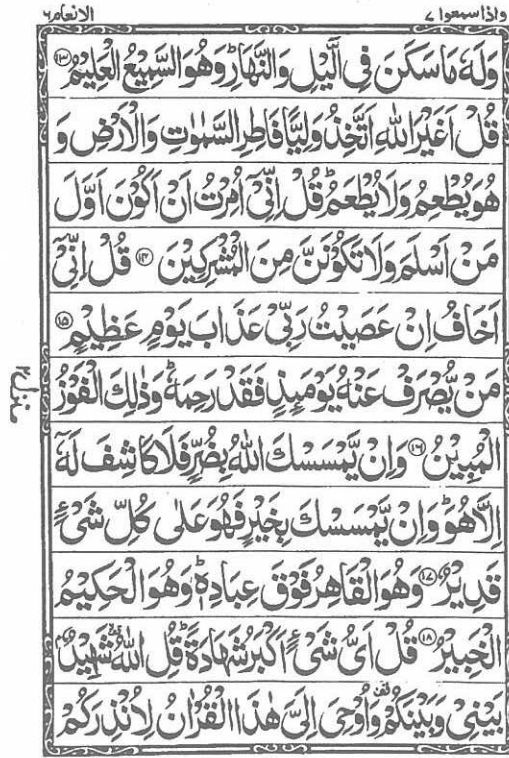 واذا سمعوا ٧
الانعام ٦
وَلَهٗ مَا سَكَنَ فِی الَّیْلِ وَالنَّهَارِ ؕ وَهُوَ السَّمِیْعُ الْعَلِیْمُ ۱۳
قُلْ اَغَیْرَ اللّٰهِ اَتَّخِذُ وَلِیًّا فَاطِرِ السَّمٰوٰتِ وَالْاَرْضِ وَ
هُوَ یُطْعِمُ وَلَا یُطْعَمُ ؕ قُلْ اِنِّیْۤ اُمِرْتُ اَنْ اَكُوْنَ اَوَّلَ
مَنْ اَسْلَمَ وَلَا تَكُوْنَنَّ مِنَ الْمُشْرِكِیْنَ ۱۴ قُلْ اِنِّیْۤ
اَخَافُ اِنْ عَصَیْتُ رَبِّیْ عَذَابَ یَوْمٍ عَظِیْمٍ ۱۵
مَنْ یُّصْرَفْ عَنْهُ یَوْمَىِٕذٍ فَقَدْ رَحِمَهٗ ؕ وَذٰلِكَ الْفَوْزُ
الْمُبِیْنُ ۱۶ وَاِنْ یَّمْسَسْكَ اللّٰهُ بِضُرٍّ فَلَا كَاشِفَ لَهٗۤ
اِلَّا هُوَ ؕ وَاِنْ یَّمْسَسْكَ بِخَیْرٍ فَهُوَ عَلٰی كُلِّ شَیْءٍ
قَدِیْرٌ ۱۷ وَهُوَ الْقَاهِرُ فَوْقَ عِبَادِهٖ ؕ وَهُوَ الْحَكِیْمُ
الْخَبِیْرُ ۱۸ قُلْ اَیُّ شَیْءٍ اَكْبَرُ شَهَادَةً ؕ قُلِ اللّٰهُ شَهِیْدٌۢ
بَیْنِیْ وَبَیْنَكُمْ وَاُوْحِیَ اِلَیَّ هٰذَا الْقُرْاٰنُ لِاُنْذِرَكُمْ
منزل ۲